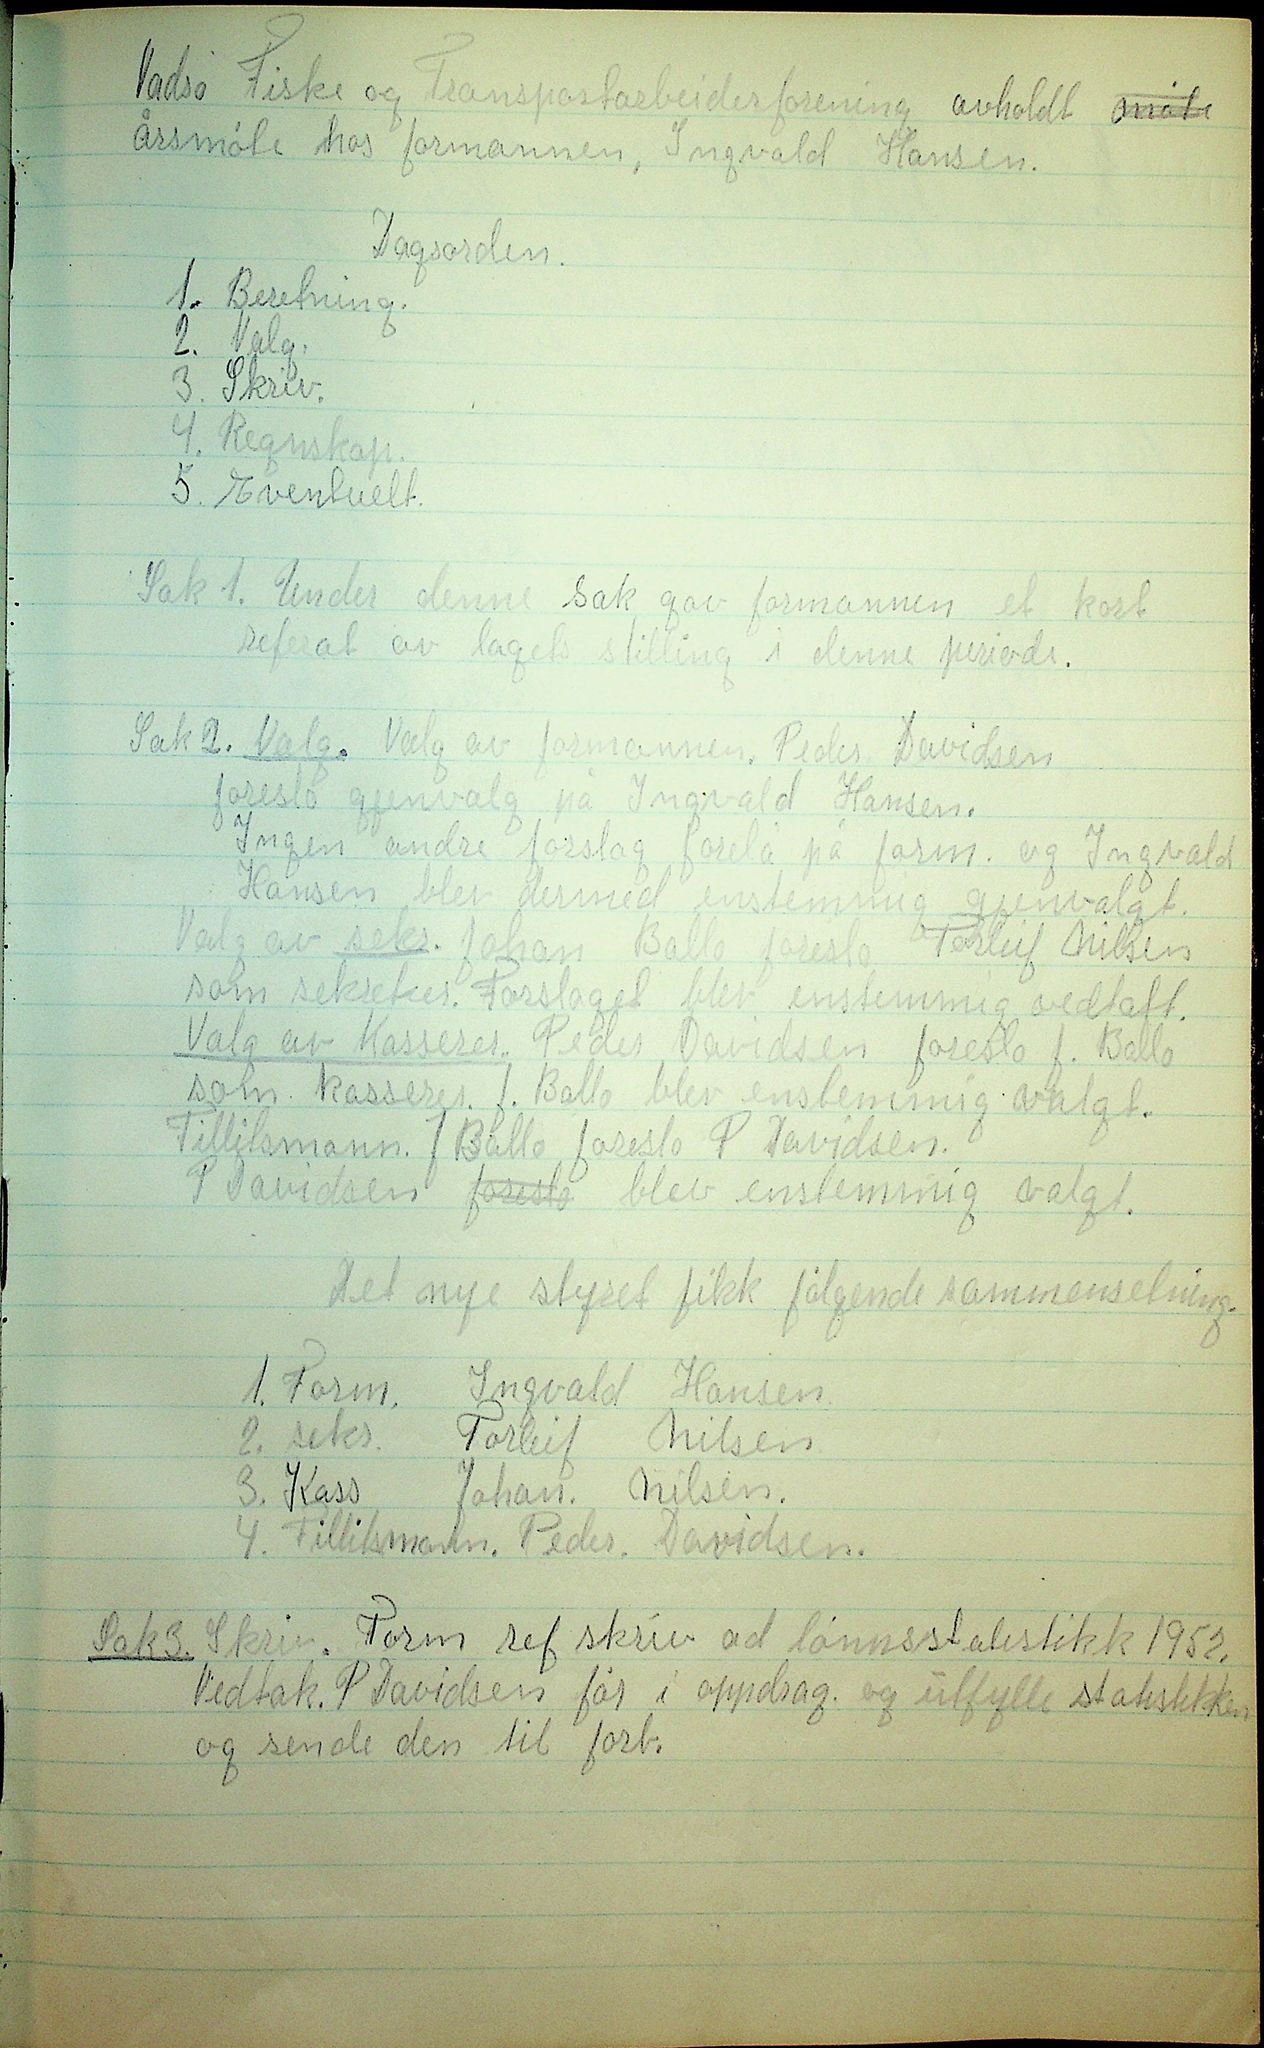 Vadsö Fiske og Transportarbeiderforening avholdt möte
årsmöte hos formannen, Ingvald Hansen.
Dagsorden.
1. Beretning.
2. Valg.
3. Skriv.
4. Regnskap.
5. Eventuelt.
Sak 1. Under denne sak gav formannen et kort
referat av lagets stilling i denne periode.
Sak 2. Valg. Valg av formannen. Peder Davidsen
foreslo gjenvalg på Ingvald Hansen.
Ingen andre forslag forelå på form. og Ingvald
Hansen blev dermed enstemmig gjenvalgt.
Valg av sekr. Johan Ballo foreslo Torleif Nilsen
som sekretær. Forslaget blev enstemmig vedtatt.
Valg av Kasserer. Peder Davidsen foreslo J. Ballo
som kasserer. J. Ballo blev enstemmig valgt.
Tillitsmann. J Ballo foreslo P Davidsen.
P Davidsen foreslo blev enstemmig valgt.
Det nye styret fikk fölgende sammensetning.
1. Form. Ingvald Hansen
2. sekr. Torleif Nilsen
3. Kass Johan. Nilsen.
4. Tillitsmann. Peder. Davidsen.
Sak 3. Skriv. Form ref skriv ad lönnsstatestikk 1952.
Vedtak. P Davidsen får i oppdrag. og utfylle statestikken
og sende den til forb.